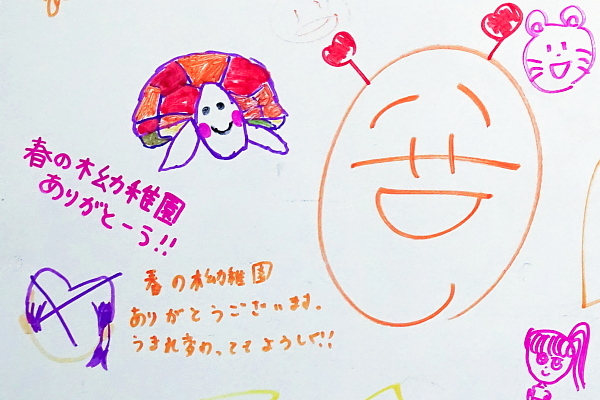 春の木幼稚園
ありがとーう!!
春の木幼稚園
ありがとうございます。
うまれ変わってもようしゅ!!